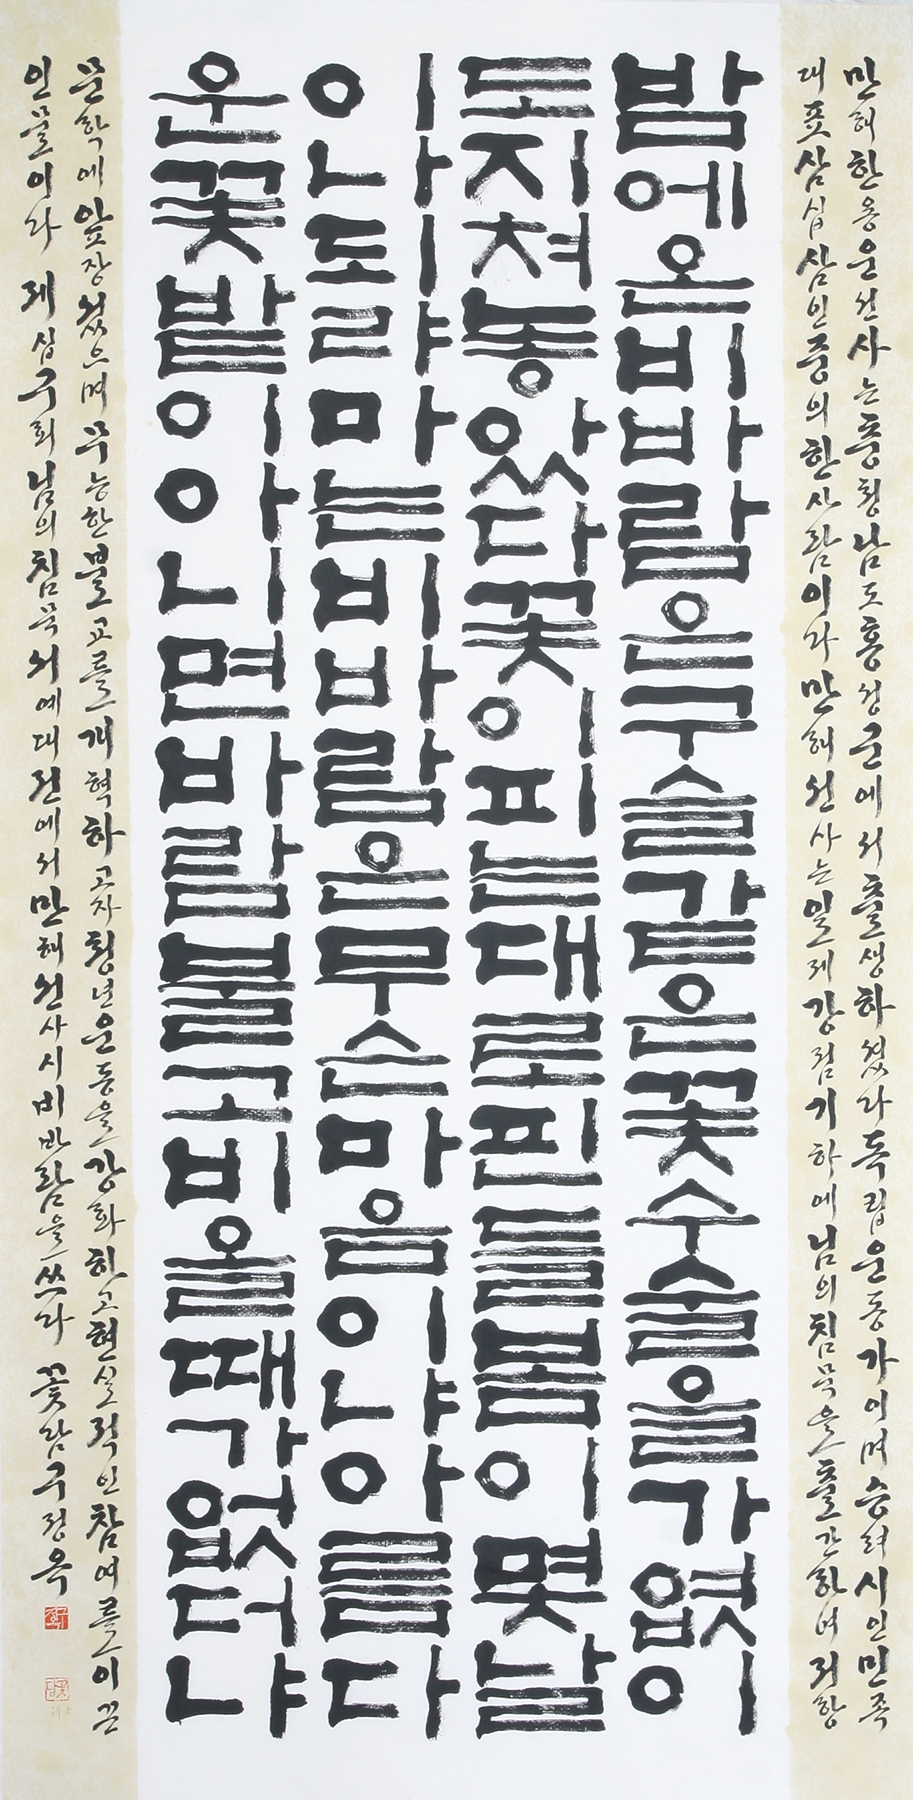 만해한용운선사는충청남도홍성군에서출생하셨다독립운동가이며승려시인민족
대표삼십삼인중의한사람이다만해선사는일제강점기하에님의침묵을출간하며저항
밤에온비바람은구슬같은꽃수술을가엾이
도지쳐놓았다꽃이피는대로핀들봄이몇날
이나되랴마는비바람은무슨마음이냐아름다
운꽃밭이아니면바람불고비올때가없더냐
문학에앞장섰으며무능한불교를개혁하고자청년운동을강화하고현실적인참여를이끈
인물이다 제십구회님의침묵서예대전에서만해선사시비바람을쓰다 꽃담구정옥